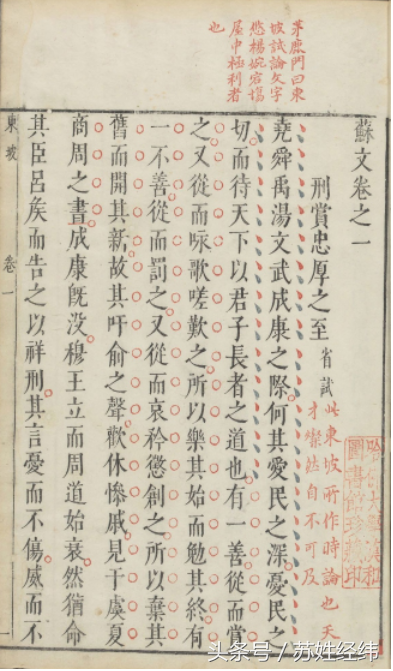 茅鹿門曰東
坡試論文字
悠楊婉宕場
屋中極利者
也
蘇文卷之一
刑賞忠厚之至 省試
此東坡所作時論也天
才燦然自不可及
哈佛大學漢和
圖書館珍藏印
堯舜禹湯文武成康之際何其愛民之深憂民之
切而待天下以君子長者之道也有一善從而賞
之又從而咏歌嗟歎之所以樂其始而勉其終有
一不善從而罰之又從而哀矜懲創之所以棄其
舊而開其新故其吁俞之聲歡休慘戚見于虞夏
商周之書成康旣没穆王立而周道始衰然猶命
其臣呂矦而告之以祥刑其言憂而不傷威而不
東坡 卷一
头条号 / 苏姓经纬